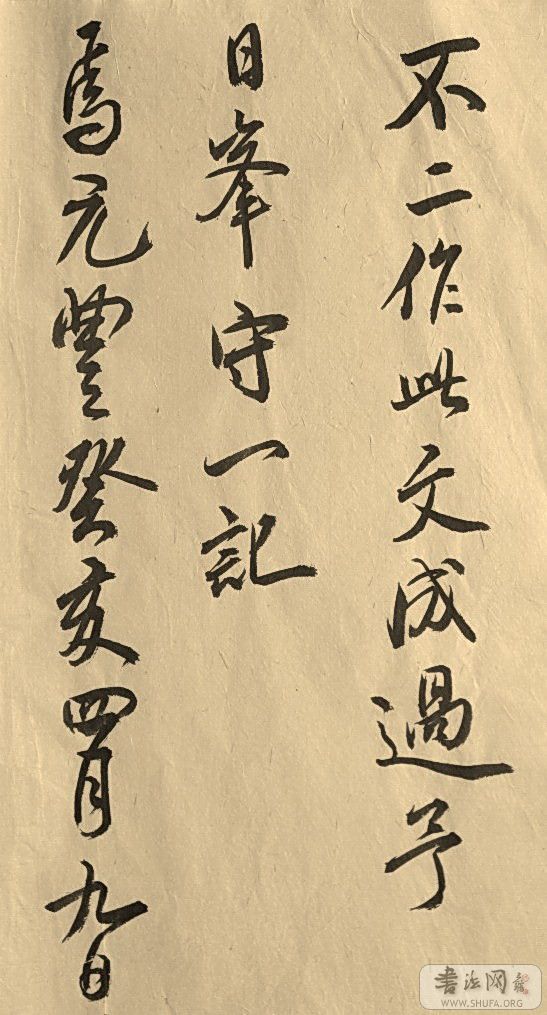 不二作此文成過予
日峯守一記
焉元豐癸亥四月九日
書法网
WWW.SHUFA.ORG